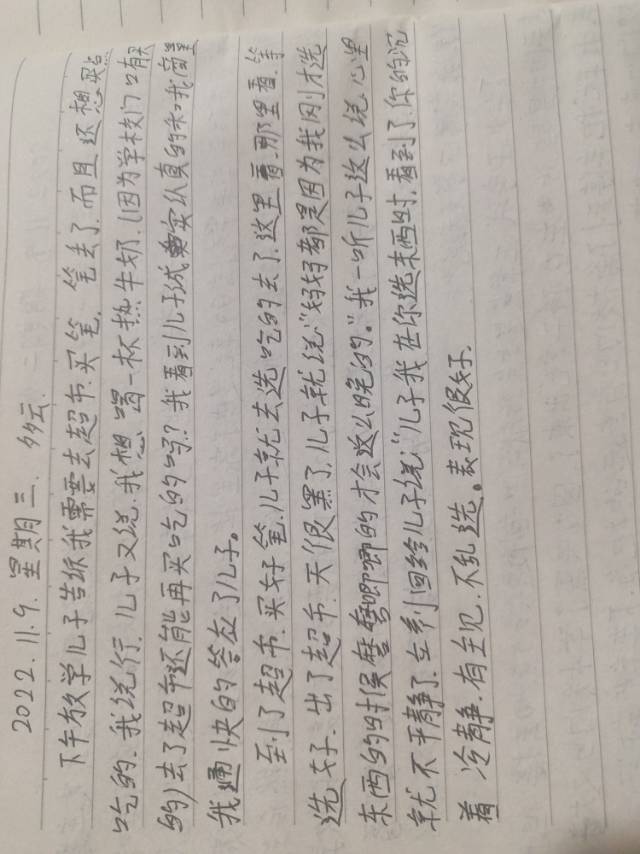 2022.11.9. 星期三. 多云.
下午放学儿子告诉我需要去超市.买笔. 笔去了.而且还想买点
吃的.我说行.儿子又说.我想喝一杯热牛奶.(因为学校门口有卖
的)去了超市还能再买吃的吗?我看到儿子诚实认真的和我商量
我通快的答应了儿子。
到了超市.买好笔.儿子就去选吃的去了.这里看.那里看.等
选好.出了超市.天很黑了.儿子就说:"妈妈都是因为我刚才选
东西的时候磨磨唧唧的才会这么晚的。"我一听儿子这么说心里
就不平静了.立刻回给儿子说:"儿子我在你选东西时.看到了你的沉
着 冷静.有主见.不乱选。表现很好.